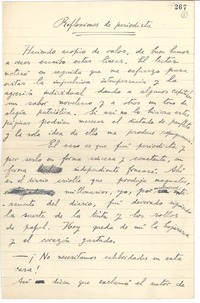 267
Reflexiones de periodista
Haciendo acopio de valor, de buen humor
a veces escribo estas líneas. El lector
notará en seguida que me esfuerzo para
evitar la injusticia intemperancia y la
agresión individual dando a algunos capítulos
un sabor novelero y a otros un tono de
elegía patriótica. De así no la hiciera estas
páginas podrían merecer el dictado de panfleto
y la sola idea de ello me produce repugnancia
El caso es que fuí periodista y
por serlo en forma sincera y constante, en
forma independiente fracasé. Allí en
el diario criollo que produjo magnates,
millonarios, yo, por
amante del diario, fuí devorado siguiendo
la suerte de la tinta y los rollos
de papel. Hoy queda de mí la
y el corazón gastado.
— ¡No necesitamos celebridades en esta
casa!
Así bien que exclamó el rector de